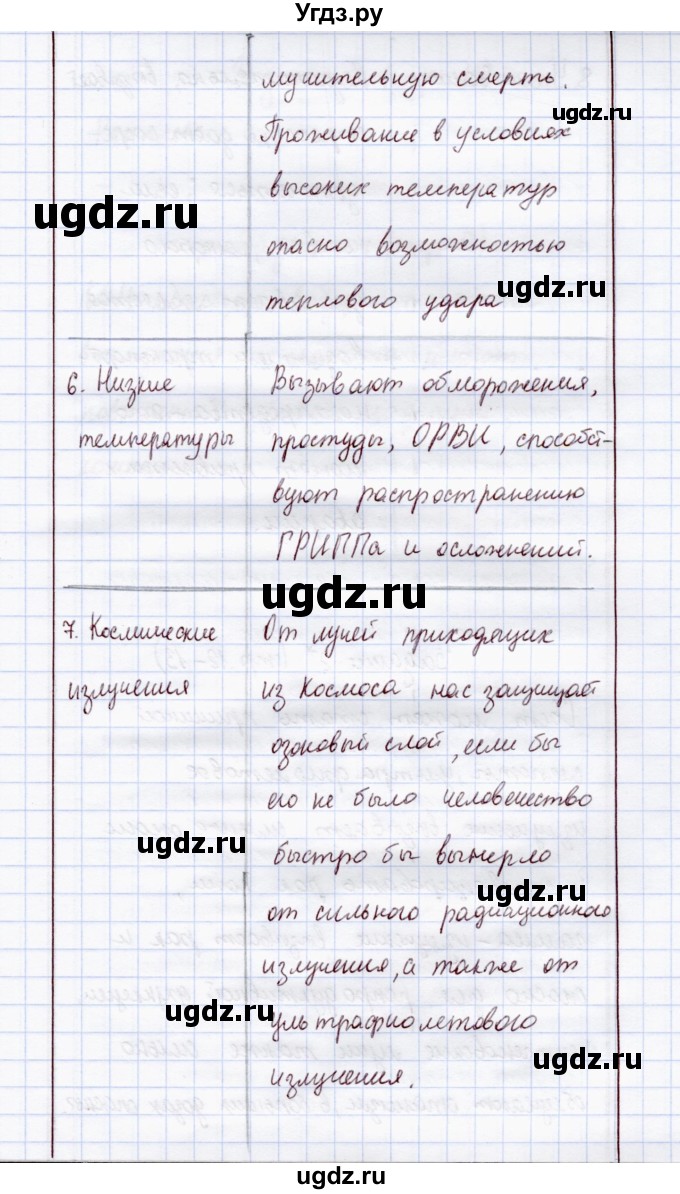 Угдз.ру
мучительную смерть.
ugdz.ru
Проживание в условиях
высоких температур
ugdz.ru
опасно возможностью
теплового удара
ugdz.ru
6. Низкие
температуры
Вызывают обморожения,
простуды, ОРВИ, способст-
вуют распространению
ГРИППа и осложнений.
ugdz.ru
7. Космические
излучения
От лучей приходящих
из Космоса нас защищает
озоновый слой, если бы
его не было человечество
ugdz.ru
быстро бы вымерло
ugdz.ru
от сильного радиационного
излучения, а также от
ugdz.ru
ультрафиолетового
ugdz.ru
излучения.
ugdz.ru